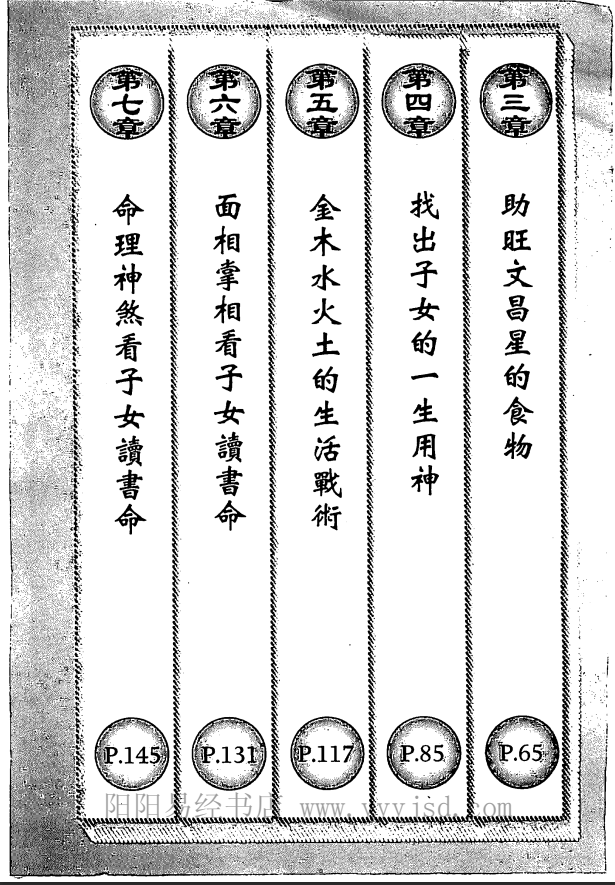 第三章
助旺文昌星的食物
P.65
第四章
找出子女的一生用神
P.85
第五章
金木水火土的生活戰術
P.117
第六章
面相掌相看子女讀書命
P.131
第七章
命理神煞看子女讀書命
P.145
阳阳易经书店 www.yyyjsd.com